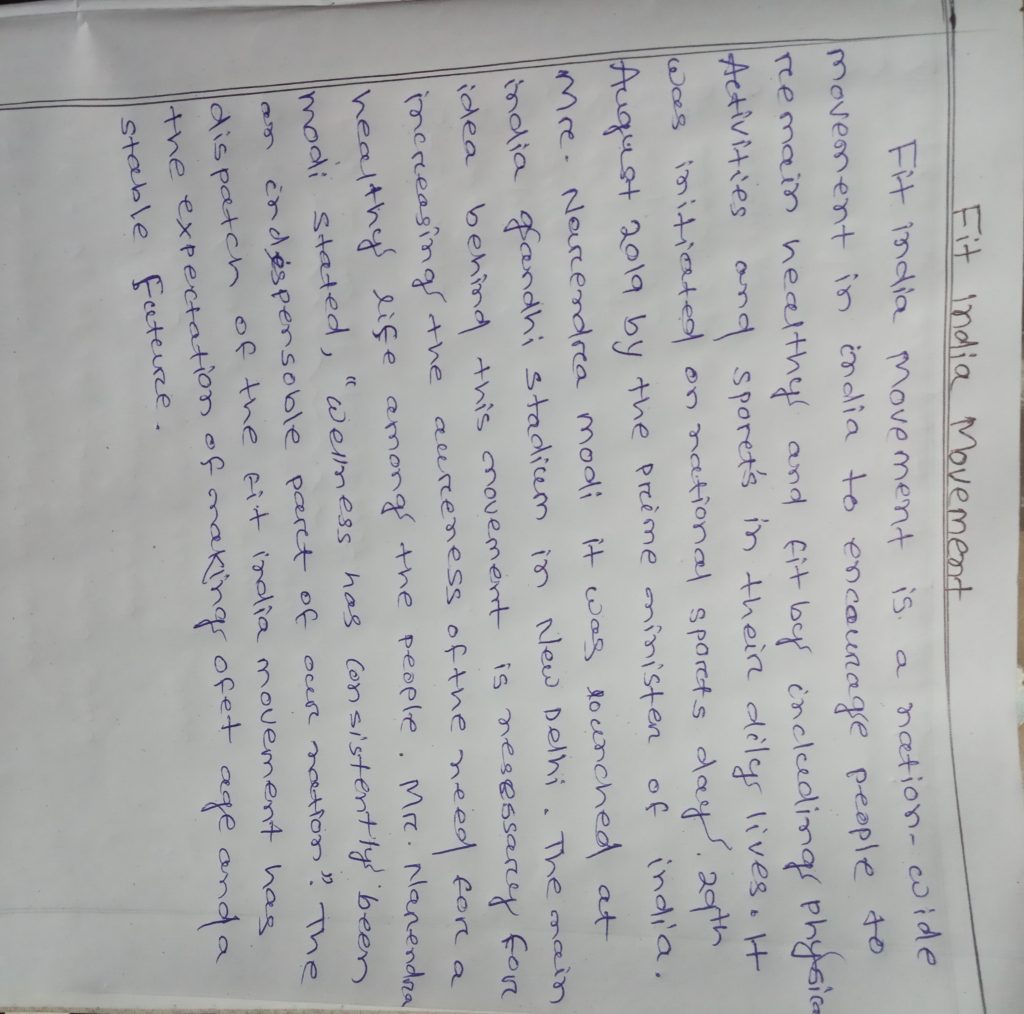 Fit India Movement
Fit india movement is a nation-wide
movement in india to encourage people to
remain healthy and fit by including physical
Activities and sports in their dily lives. It
was initiated on national sports day. 29th
August 2019 by the prime minister of india.
Mr. Narendra modi it was lounched at
india gandhi stadium in New Delhi. The main
idea behind this movement is nesessary for
increasing the aureness of the need for a
healthy life among the people. Mr. Narendra
modi stated, "wellness has consistently been
an indespensoble part of our nation". The
dispatch of the fit india movement has
the expectation of making ofet age and a
stable future.